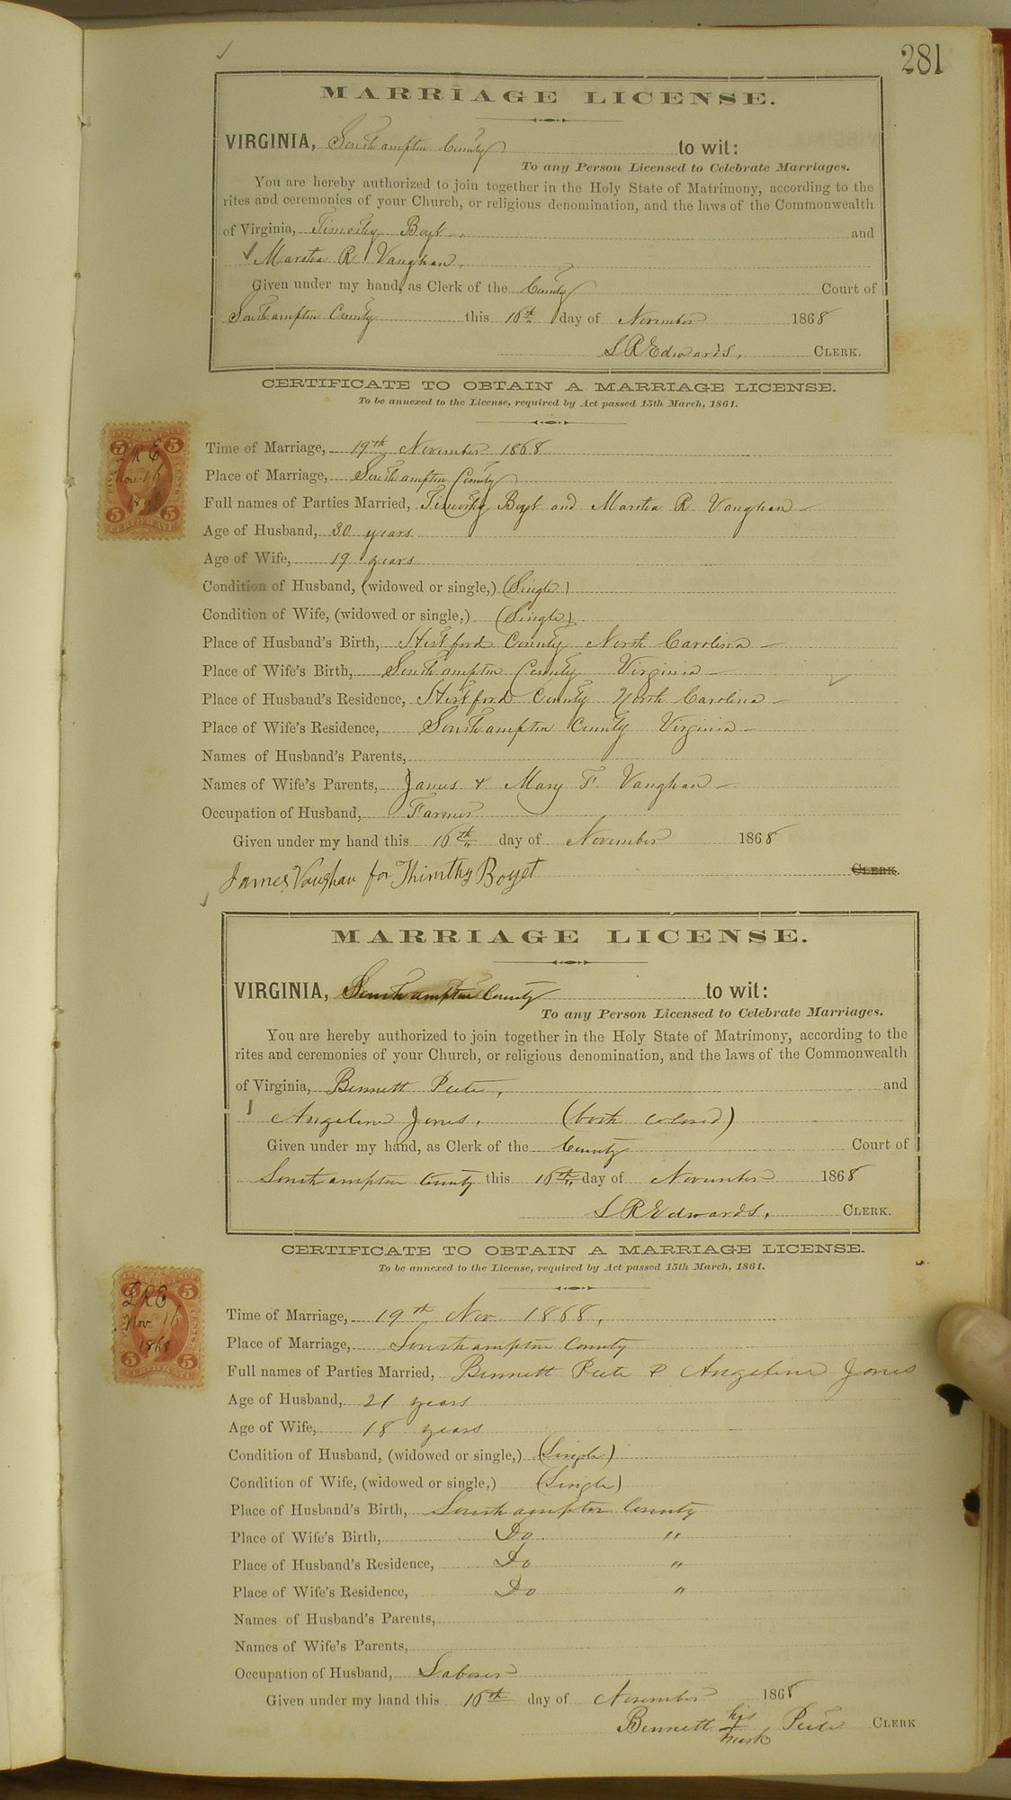 281
MARRIAGE LICENSE.
VIRGINIA, Southampton County to wit:
To any Person Licensed to Celebrate Marriages.
You are hereby authorized to join together in the Holy State of Matrimony, according to the
rites and ceremonies of your Church, or religious denomination, and the laws of the Commonwealth
of Virginia, Timothy Boyt, and
Martha R Vaughan,
Given under my hand, as Clerk of the County Court of
Southampton County this 16th day of November 1868
L R Edwards, CLERK.
CERTIFICATE TO OBTAIN A MARRIAGE LICENSE.
To be annexed to the License, required by Act passed 15th March, 1861.
5 5
L R E
Nov. 16
1868
5 5
CERTIFICATE
Time of Marriage, 19th November 1868
Place of Marriage, Southampton County
Full names of Parties Married, Timothy Boyt and Martha R Vaughan
Age of Husband, 30 years
Age of Wife, 19 years
Condition of Husband, (widowed or single,) (Single)
Condition of Wife, (widowed or single,) (Single)
Place of Husband's Birth, Hertford County North Carolina
Place of Wife's Birth, Southampton County Virginia
Place of Husband's Residence, Hertford County North Carolina
Place of Wife's Residence, Southampton County Virginia
Names of Husband's Parents,
Names of Wife's Parents, James & Mary F Vaughan
Occupation of Husband, Farmer
Given under my hand this 16th day of November 1868
James Vaughan for Thimthy Boyet CLERK.
MARRIAGE LICENSE.
VIRGINIA, Southampton County to wit:
To any Person Licensed to Celebrate Marriages.
You are hereby authorized to join together in the Holy State of Matrimony, according to the
rites and ceremonies of your Church, or religious denomination, and the laws of the Commonwealth
of Virginia, Bennett Pete, and
Angeline Jones, (both colored)
Given under my hand, as Clerk of the County Court of
Southampton County this 16th, day of November 1868
L R Edwards, CLERK.
CERTIFICATE TO OBTAIN A MARRIAGE LICENSE.
To be annexed to the License, required by Act passed 15th March, 1861.
L R E
Nov 16
1868
5 5
CERTIFICATE
Time of Marriage, 19th Nov 1868,
Place of Marriage, Southampton County
Full names of Parties Married, Bennett Pete & Angeline Jones
Age of Husband, 21 years
Age of Wife, 18 years
Condition of Husband, (widowed or single,) (Single)
Condition of Wife, (widowed or single,) (Single)
Place of Husband's Birth, Southampton County
Place of Wife's Birth, Do "
Place of Husband's Residence, Do "
Place of Wife's Residence, Do "
Names of Husband's Parents,
Names of Wife's Parents,
Occupation of Husband, Laborer
Given under my hand this 16th day of November 1868
Bennett his mark Pete CLERK